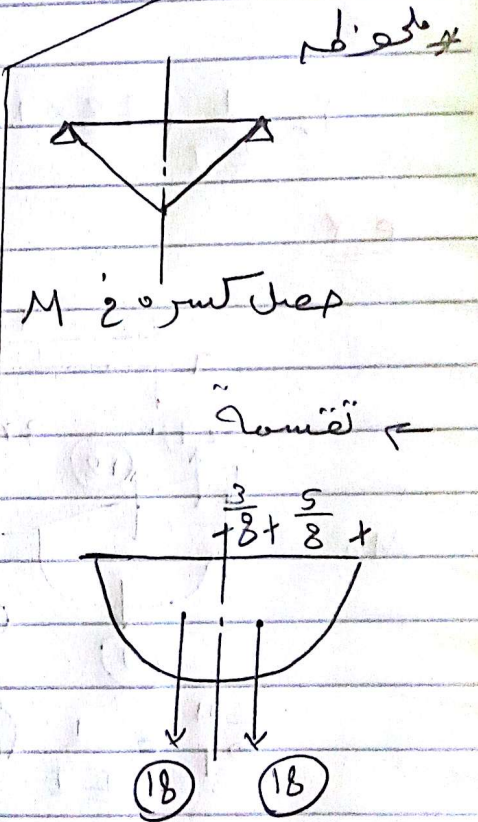 * ملحوظه
حصل كسر ه في M
تقسمة
3/8 5/8
18 18